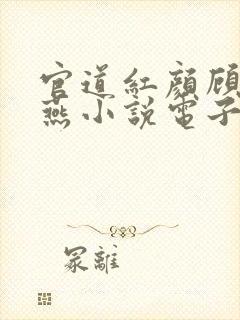 官道紅顏顧
燕小說電子
冢離